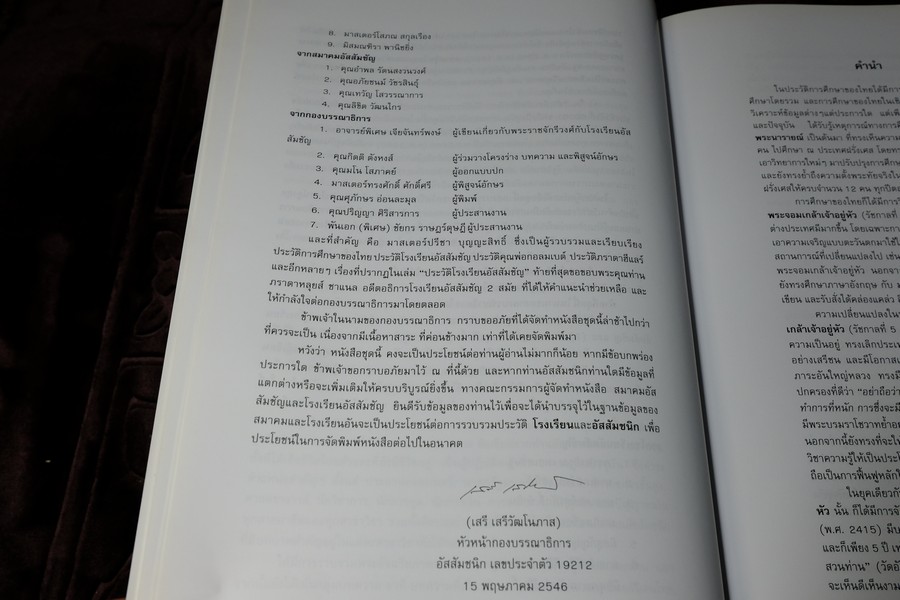 8. มาสเตอร์โสภณ สกุลเรือง
9. มิสมณฑิรา พานิชยิ่ง
จากสมาคมอัสสัมชัญ
1. คุณอำพล รัตนสงวนวงศ์
2. คุณอภัยชนม์ วัชรสินธุ์
3. คุณเทวัญ โสวรรณาการ
4. คุณลิขิต วัฒนไกร
จากกองบรรณาธิการ
1. อาจารย์พิเศษ เจียจันทร์พงษ์ ผู้เขียนเกี่ยวกับพระราชจักรีวงศ์กับโรงเรียนอัส
สัมชัญ
2. คุณกิตติ ตังหงส์ ผู้ร่วมวางโครงร่าง บทความ และพิสูจน์อักษร
3. คุณมโน โสภาคย์ ผู้ออกแบบปก
4. มาสเตอร์ทรงศักดิ์ ศักดิ์ศรี ผู้พิสูจน์อักษร
5. คุณศุภักษร อ่อนละมุล ผู้พิมพ์
6. คุณปริญญา ศิริสารการ ผู้ประสานงาน
7. พันเอก (พิเศษ) ชัยกร ราษฎร์ดุษฎี ผู้ประสานงาน
และที่สำคัญ คือ มาสเตอร์ปรีชา บุญญะสิทธิ์ ซึ่งเป็นผู้รวบรวมและเรียบเรียง
ประวัติการศึกษาของไทย ประวัติโรงเรียนอัสสัมชัญ ประวัติคุณพ่อกอลมเบต์ ประวัติภราดาฮีแลร์
และอีกหลายๆ เรื่องที่ปรากฏในเล่ม “ประวัติโรงเรียนอัสสัมชัญ” ท้ายที่สุดขอขอบพระคุณท่าน
ภราดาหลุยส์ ชาแนล อดีตอธิการโรงเรียนอัสสัมชัญ 2 สมัย ที่ได้ให้คำแนะนำช่วยเหลือ และ
ให้กำลังใจต่อกองบรรณาธิการมาโดยตลอด
ข้าพเจ้าในนามของกองบรรณาธิการ กราบขออภัยที่ได้จัดทำหนังสือชุดนี้ล่าช้าไปกว่า
ที่ควรจะเป็น เนื่องจากมีเนื้อหาสาระ ที่ค่อนข้างมาก เท่าที่ได้เคยจัดพิมพ์มา
หวังว่า หนังสือชุดนี้ คงจะเป็นประโยชน์ต่อท่านผู้อ่านไม่มากก็น้อย หากมีข้อบกพร่อง
ประการใด ข้าพเจ้าขอกราบอภัยมาไว้ ณ ที่นี้ด้วย และหากท่านอัสสัมชนิกท่านใดมีข้อมูลที่
แตกต่างหรือจะเพิ่มเติมให้ครบบริบูรณ์ยิ่งขึ้น ทางคณะกรรมการผู้จัดทำหนังสือ สมาคมอัส
สัมชัญและโรงเรียนอัสสัมชัญ ยินดีรับข้อมูลของท่านไว้เพื่อจะได้นำบรรจุไว้ในฐานข้อมูลของ
สมาคมและโรงเรียนอันจะเป็นประโยชน์ต่อการรวบรวมประวัติ โรงเรียนและอัสสัมชนิก เพื่อ
ประโยชน์ในการจัดพิมพ์หนังสือต่อไปในอนาคต
(เสรี เสรีวัฒโนภาส)
หัวหน้ากองบรรณาธิการ
อัสสัมชนิก เลขประจำตัว 19212
15 พฤษภาคม 2546
คำนำ
ในประวัติการศึกษาของไทยได้มีการ
ศึกษาโดยรวม และการศึกษาของไทยในเชิ
วิเคราะห์ข้อมูลต่างๆแต่ประการใด แต่เพื
และปัจจุบัน ได้รับรู้เหตุการณ์ทางการศึ
พระนารายณ์ เป็นต้นมา ที่ทรงเห็นความ
คน ไปศึกษา ณ ประเทศฝรั่งเศส โดยทร
เอาวิทยาการใหม่ๆ มาปรับปรุงการศึกษ
และยังทรงย้ำถึงความตั้งพระทัยจริงใน
ฝรั่งเศสให้ครบจำนวน 12 คน ทุกปีตล
การศึกษาของไทยก็ได้มีการวิ
พระจอมเกล้าเจ้าอยู่หัว (รัชกาลที่
ต่างประเทศมีมากขึ้น โดยเฉพาะกา
เอาความเจริญแบบตะวันตกมาใช้
สถานการณ์ที่เปลี่ยนแปลงไป เช่น
พระจอมเกล้าเจ้าอยู่หัว นอกจาก
ยังทรงศึกษาภาษาอังกฤษ กับ ม
เขียน และรับสั่งได้คล่องแคล่ว
ความเปลี่ยนแปลงใน
เกล้าเจ้าอยู่หัว (รัชกาลที่ 5
ความเป็นอยู่ ทรงเลิกประเพ
อย่างเสรีชน และมีโอกาสเ
ภาระอันใหญ่หลวง ทรงมี
ปกครองที่ดีว่า “อย่าถือว่า
ทำการที่หนัก การซึ่งจะมี
มีพระบรมราโชวาทย้ำอย
นอกจากนี้ยังทรงที่จะให้
วิชาความรู้ให้เป็นประโ
ถือเป็นการฟื้นฟูหลักใ
ในยุคเดียวกั
หัว นั้น ก็ได้มีการจั
(พ.ศ. 2415) มีบ
และก็เพียง 5 ปี เท
สวนท่าน” (วัดอั
จะเห็นดีเห็นงาม